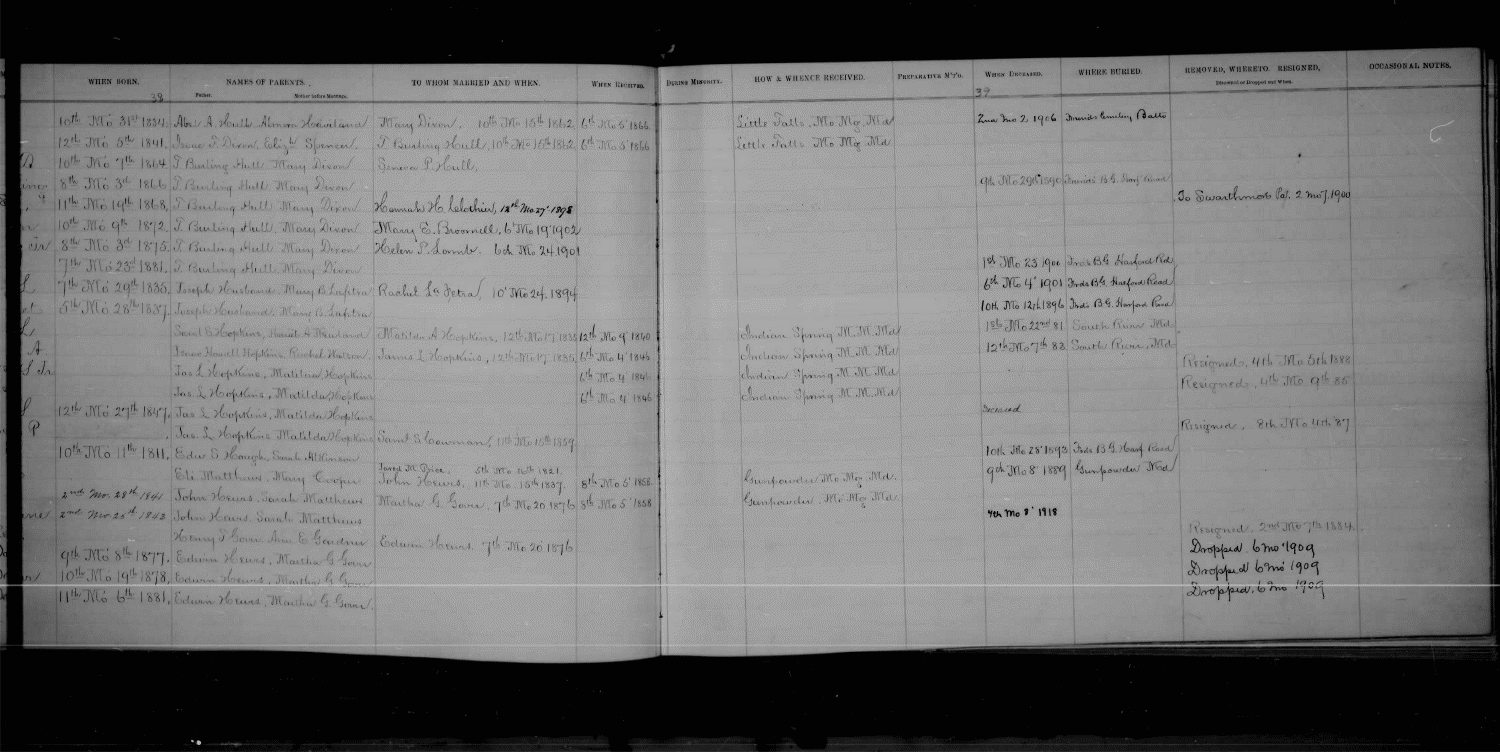 WHEN BORN. NAMES OF PARENTS. TO WHOM MARRIED AND WHEN. WHEN RECEIVED. DURING MINORITY. HOW & WHENCE RECEIVED. PREPARATIVE M'T'G. WHEN DECEASED. WHERE BURIED. REMOVED, WHERETO. RESIGNED, OCCASIONAL NOTES.
Father. Mother before Marriage. Disowned or Dropped and When.
38 39
10th Mo 31st 1834, A. Hull, Mary Dixon, 10th Mo 15th 1862, 6th Mo 5' 1866 Little Falls, Mo Mtg, Md 2nd mo 2, 1906 Friends Cemetery Balto
12th Mo 5th 1841, Isaac F. Dixon, Eliz'h Spencer T Burling Hull, 10th Mo 15th 1862, 6th Mo 5' 1866 Little Falls Mo Mtg Md
10th Mo 7th 1864 T Burling Hull Mary Dixon P. Hull,
8th Mo 3rd 1866 T Burling Hull Mary Dixon 9th Mo 29th 1890 Friends B.G. Harf. Road
11th Mo 19th 1868, T Burling Hull, Mary Dixon Hannah H. 12th Mo 27' 1898 To Swarthmore Pa. 2 mo 7, 1900
10th Mo 9th 1872, T Burling Hull, Mary Dixon Mary E. Broomell, 6' Mo 19' 1902
8th Mo 3rd 1875, T Burling Hull Mary Dixon Helen P. Lamb. 6th Mo 24 1901
7th Mo 23rd 1881, T Burling Hull Mary Dixon 1st Mo 23 1900 Frds B.G. Harford Rd
L 7th Mo 29th 1835, Joseph Husband, Mary B. Lafetra Rachel La Fetra, 10' Mo 24, 1894 6th Mo 4' 1901 Frds B.G. Harford Road
et 5th Mo 28th 1837, Joseph Husband, Mary B. Lafetra 10th Mo 12th 1896 Frds B.G. Harford Road
L Hopkins, Matilda A Hopkins, 12th Mo 17 1835 12th Mo 9' 1840 Indian Spring M. M. Md 1st Mo 22nd 81 South River Md
A. Howell Hopkins, Rachel Watson, James L Hopkins, 12th Mo 17, 1835, 6th Mo 4' 1846 Indian Spring M. M. Md 12th Mo 7th 83 South River, Md
L Jr Jas L Hopkins, Matilda Hopkins 6th Mo 4 1846 Indian Spring M. M. Md Resigned, 4th Mo 5th 1888
Jas L Hopkins, Matilda Hopkins 6th Mo 4' 1846 Indian Spring M. M. Md Resigned, 4th Mo 9th 85
L 12th Mo 27th 1847, Jas L Hopkins, Matilda Hopkins Deceased
P Jas. L Hopkins Matilda Hopkins Saml S Cowman, 11th Mo 15th 1859 Resigned, 8th Mo 4th 87
10th Mo 11th 1811, Edw S Hough, Sarah Atkinson 10th Mo 28' 1893 Frds B.G. Harf. Road
Eli Matthews, Mary Cooper Price, 5th Mo 16th 1821. 9th Mo 8' 1889 Gunpowder Md
John Hewes, 11th Mo. 15th 1837. 8th Mo 5' 1858 Gunpowder Mo Mtg Md.
2nd Mo. 28th 1841 John Hewes, Sarah Matthews Martha G. Gover, 7th Mo 20 1876 8th Mo 5' 1858 Gunpowder, Mo Mtg Md
2nd Mo 25th 1843 John Hewes, Sarah Matthews 4th Mo 8' 1918
Henry T Gover Ann E Gardner Edwin Hewes, 7th Mo 20' 1876 Resigned 2nd Mo 7th 1884
9th Mo 8th 1877, Edwin Hewes, Martha G. Gover Dropped. 6 mo 1909
10th Mo 19th 1878, Edwin Hewes, Martha G Gover Dropped 6 mo 1909
11th Mo 6th 1881, Edwin Hewes, Martha G. Gover. Dropped, 6 mo 1909